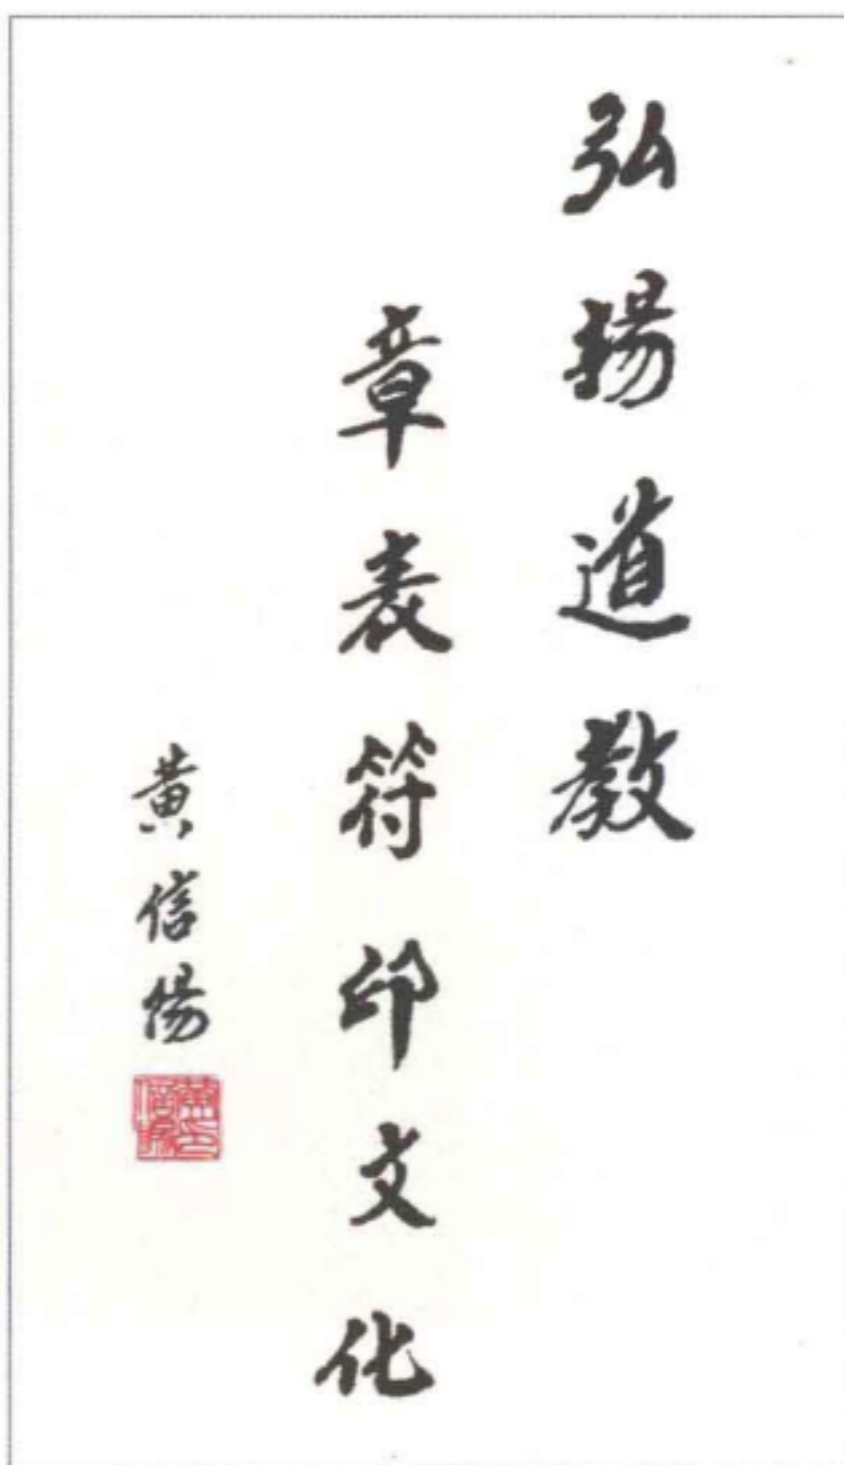 弘揚道教
章表符印文化
黄信陽